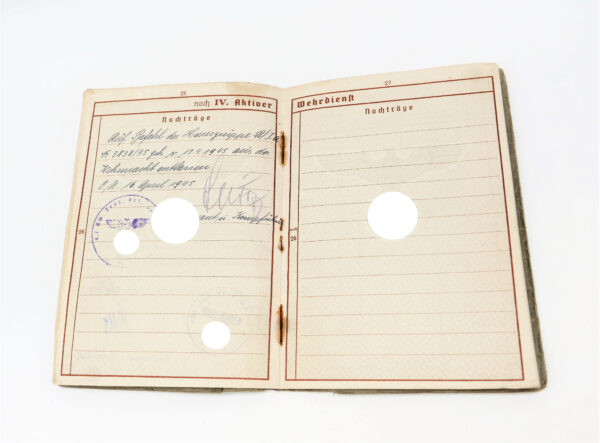 26
noch IV. Aktiver
Nachträge
Auf Befehl der Heeresgruppe B/I a
3838/45 geh. v. 13.4.1945 aus der
Wehrmacht entlassen
O.U. 16. April 1945
u. Kompführer
26
27
Wehrdienst
Nachträge
noch
26